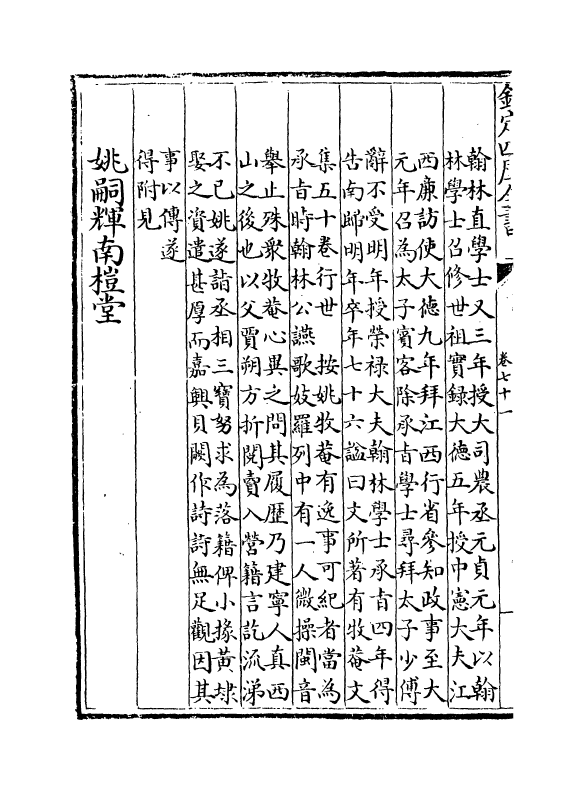 欽定四庫全書
卷七十一
翰林直學士又三年授大司農丞元貞元年以翰
林學士召修世祖實録大德五年授中憲大夫江
西廉訪使大德九年拜江西行省參知政事至大
元年召為太子賓客除承㫖學士尋拜太子少傅
辭不受明年授榮禄大夫翰林學士承㫖四年得
告南歸明年卒年七十六諡曰文所著有牧菴文
集五十卷行世　按姚牧菴有逸事可紀者當為
承㫖時翰林公讌歌妓羅列中有一人微操閩音
舉止殊衆牧菴心異之問其履歴乃建寧人真西
山之後也以父賈朔方折閲賣入營籍言訖流涕
不已姚遂詣丞相三寶努求為落籍俾小掾黄棣
娶之資遣甚厚而嘉興貝闕作詩詩無足觀因其
事以傳遂
得附見
姚嗣輝南榿堂